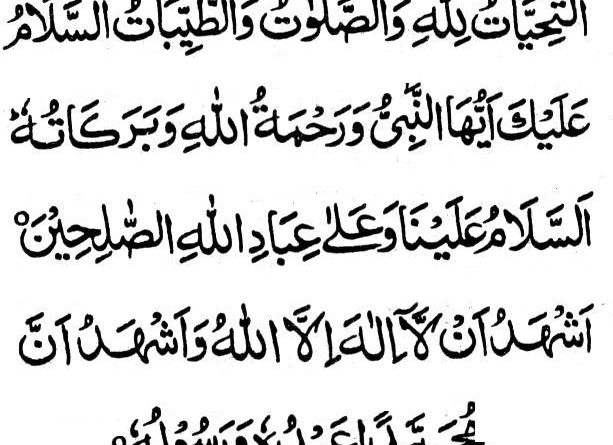 اَلتَّحِيَّاتُ لِلّٰهِ وَالصَّلَوٰتُ وَالطَّيِّبَاتُ اَلسَّلَامُ
عَلَيْكَ اَيُّهَا النَّبِىُّ وَرَحْمَةُ اللّٰهِ وَبَرَكَاتُهٗ
اَلسَّلَامُ عَلَيْنَا وَعَلٰى عِبَادِ اللّٰهِ الصّٰلِحِيْنَ ○
اَشْهَدُ اَنْ لَّآ اِلٰهَ اِلَّا اللّٰهُ وَاَشْهَدُ اَنَّ
مُحَمَّدًا عَبْدُهٗ وَرَسُوْلُهٗ ○